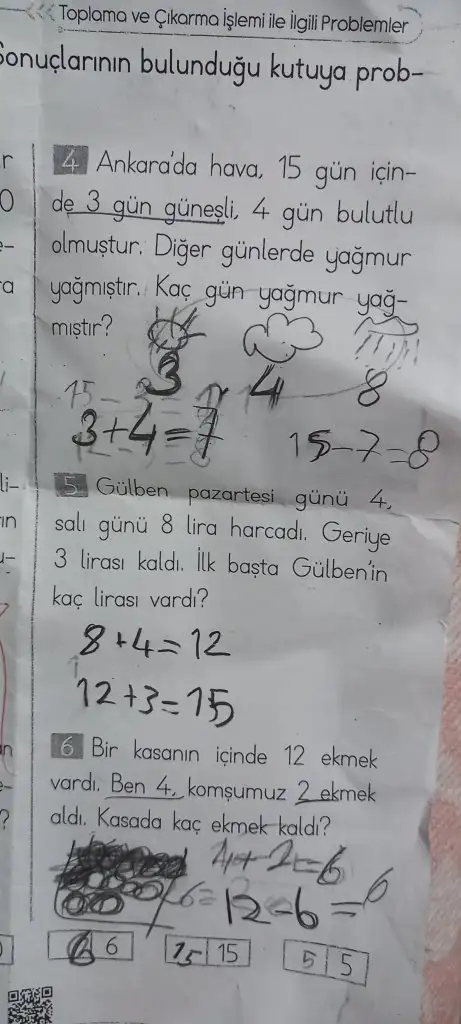 <<< Toplama ve Çıkarma İşlemi ile İlgili Problemler
Sonuçlarının bulunduğu kutuya prob-
4 Ankara'da hava, 15 gün için-
de 3 gün güneşli, 4 gün bulutlu
olmuştur. Diğer günlerde yağmur
yağmıştır. Kaç gün yağmur yağ-
mıştır?
3 4 8
3+4=7 15-7=8
5 Gülben pazartesi günü 4,
salı günü 8 lira harcadı. Geriye
3 lirası kaldı. İlk başta Gülben'in
kaç lirası vardı?
8+4=12
12+3=15
6 Bir kasanın içinde 12 ekmek
vardı. Ben 4, komşumuz 2 ekmek
aldı. Kasada kaç ekmek kaldı?
4+2=6
12-6=6
6 6 15 15 5 5